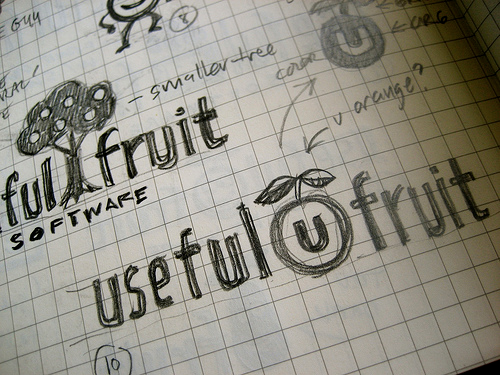 GUY
8
smaller tree
color
u orange?
ful fruit
SOFTWARE
u
useful u fruit
10